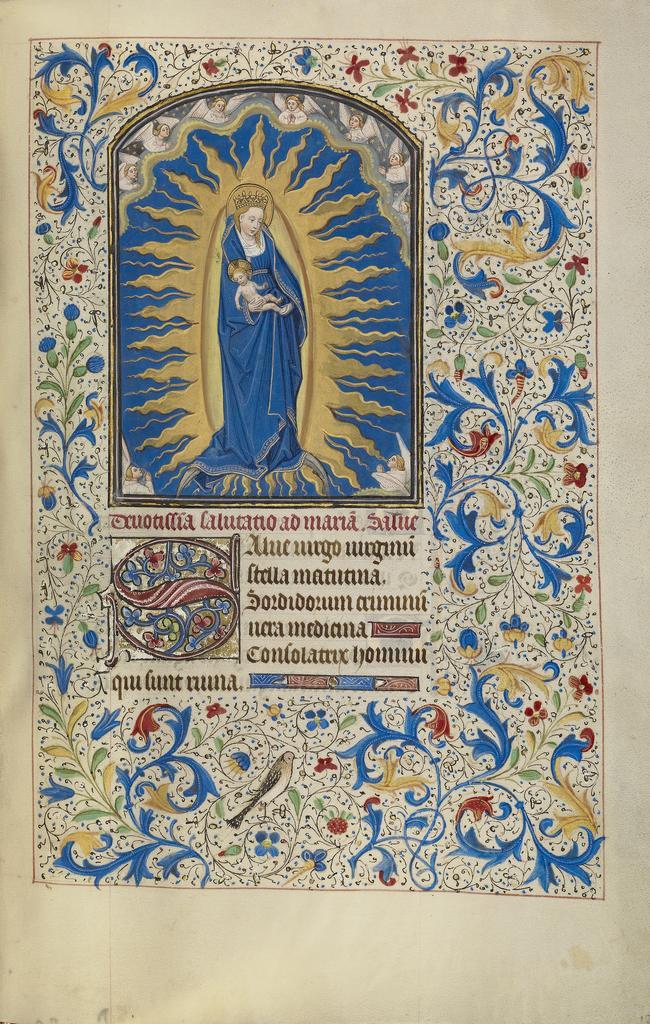 Deuotissia salutatio ad mariã. Salue
Salue uirgo uirginũ
stella matutina.
Sordidorum criminũ
uera medicina
Consolatrix hominũ
qui sunt ruina.